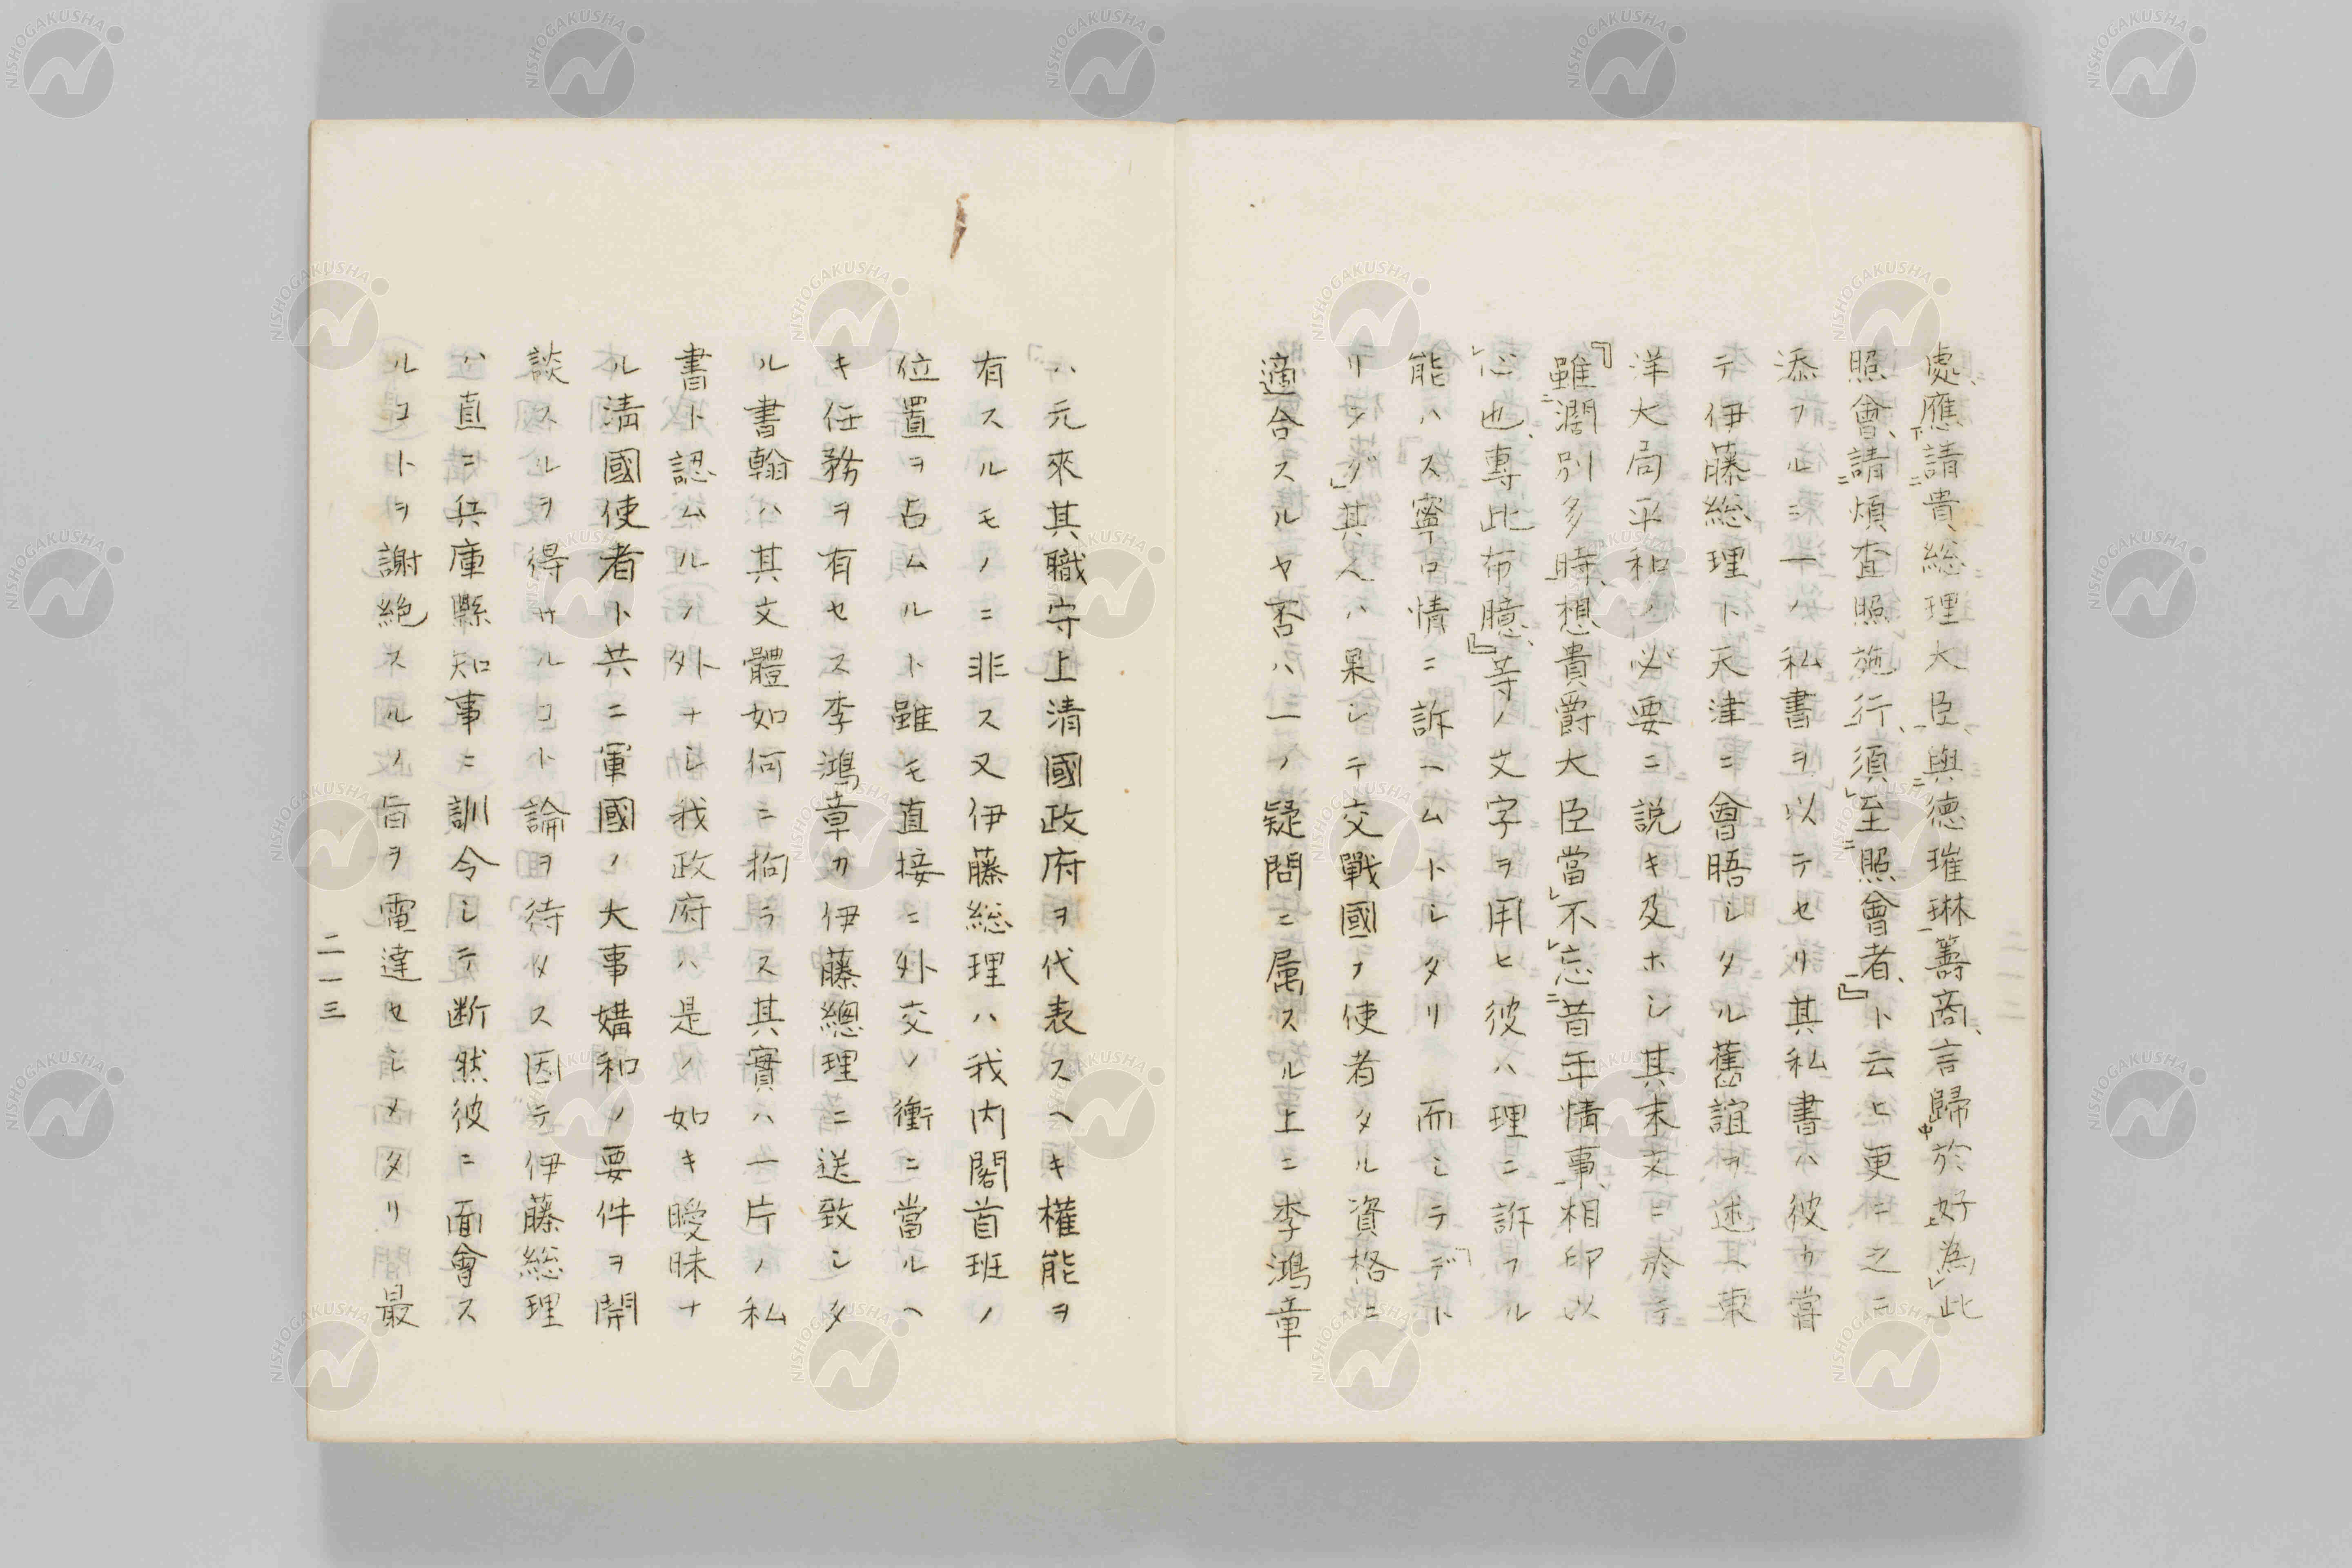 處、應請貴総理大臣、與德璀琳籌商、言歸於好、為此
照會、請煩査照施行、須至照會者、』ト云ヒ更ニ之ニ
添フルニ一ノ私書ヲ以テセリ其私書ハ彼カ嘗
テ伊藤総理ト天津ニ會晤シタル舊誼ヲ述ヘ東
洋大局平和ノ必要ニ説キ及ホシ其末文ニ於テ
『雖濶別多時、想貴爵大臣當不忘昔年情事、相印以
心也、專此布臆、』等ノ文字ヲ用ヒ彼ハ理ニ訴フル
能ハス寧ロ情ニ訴ヘムトシタリ 而シテ「デト
リング」其人ハ果シテ交戰國ノ使者タル資格ニ
適合スルヤ否ハ一ノ疑問ニ属スル上ニ李鴻章
ハ元來其職守上清國政府ヲ代表スヘキ權能ヲ
有スルモノニ非ス又伊藤総理ハ我内閣首班ノ
位置ヲ占ムルト雖モ直接ニ外交ノ衝ニ當ルヘ
キ任務ヲ有セス李鴻章カ伊藤總理ニ送致シタ
ル書翰ハ其文體如何ニ拘ラス其實ハ一片ノ私
書ト認ムルノ外ナシ我政府ハ是ノ如キ曖昧ナ
ル清國使者ト共ニ軍國ノ大事媾和ノ要件ヲ開
談スルヲ得サルコト論ヲ待タス因テ伊藤総理
ハ直ニ兵庫縣知事ニ訓令シテ断然彼ニ面會ス
ルコトヲ謝絶スルノ旨ヲ電達セシメタリ最
二一三
NISHOGAKUSHA